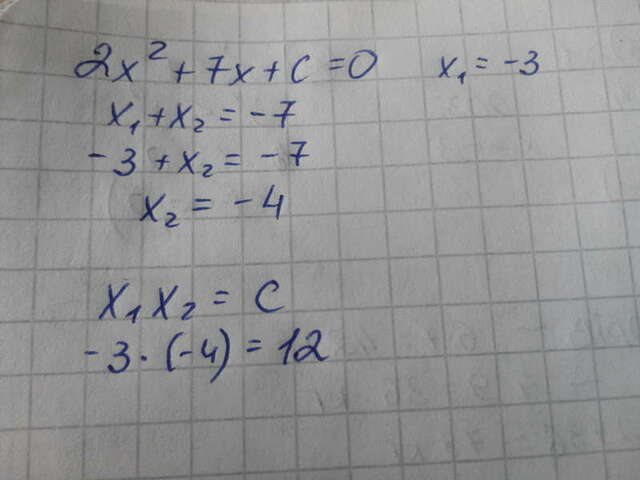 2x² + 7x + C = 0    x₁ = -3
x₁ + x₂ = -7
-3 + x₂ = -7
x₂ = -4
x₁ x₂ = C
-3 · (-4) = 12